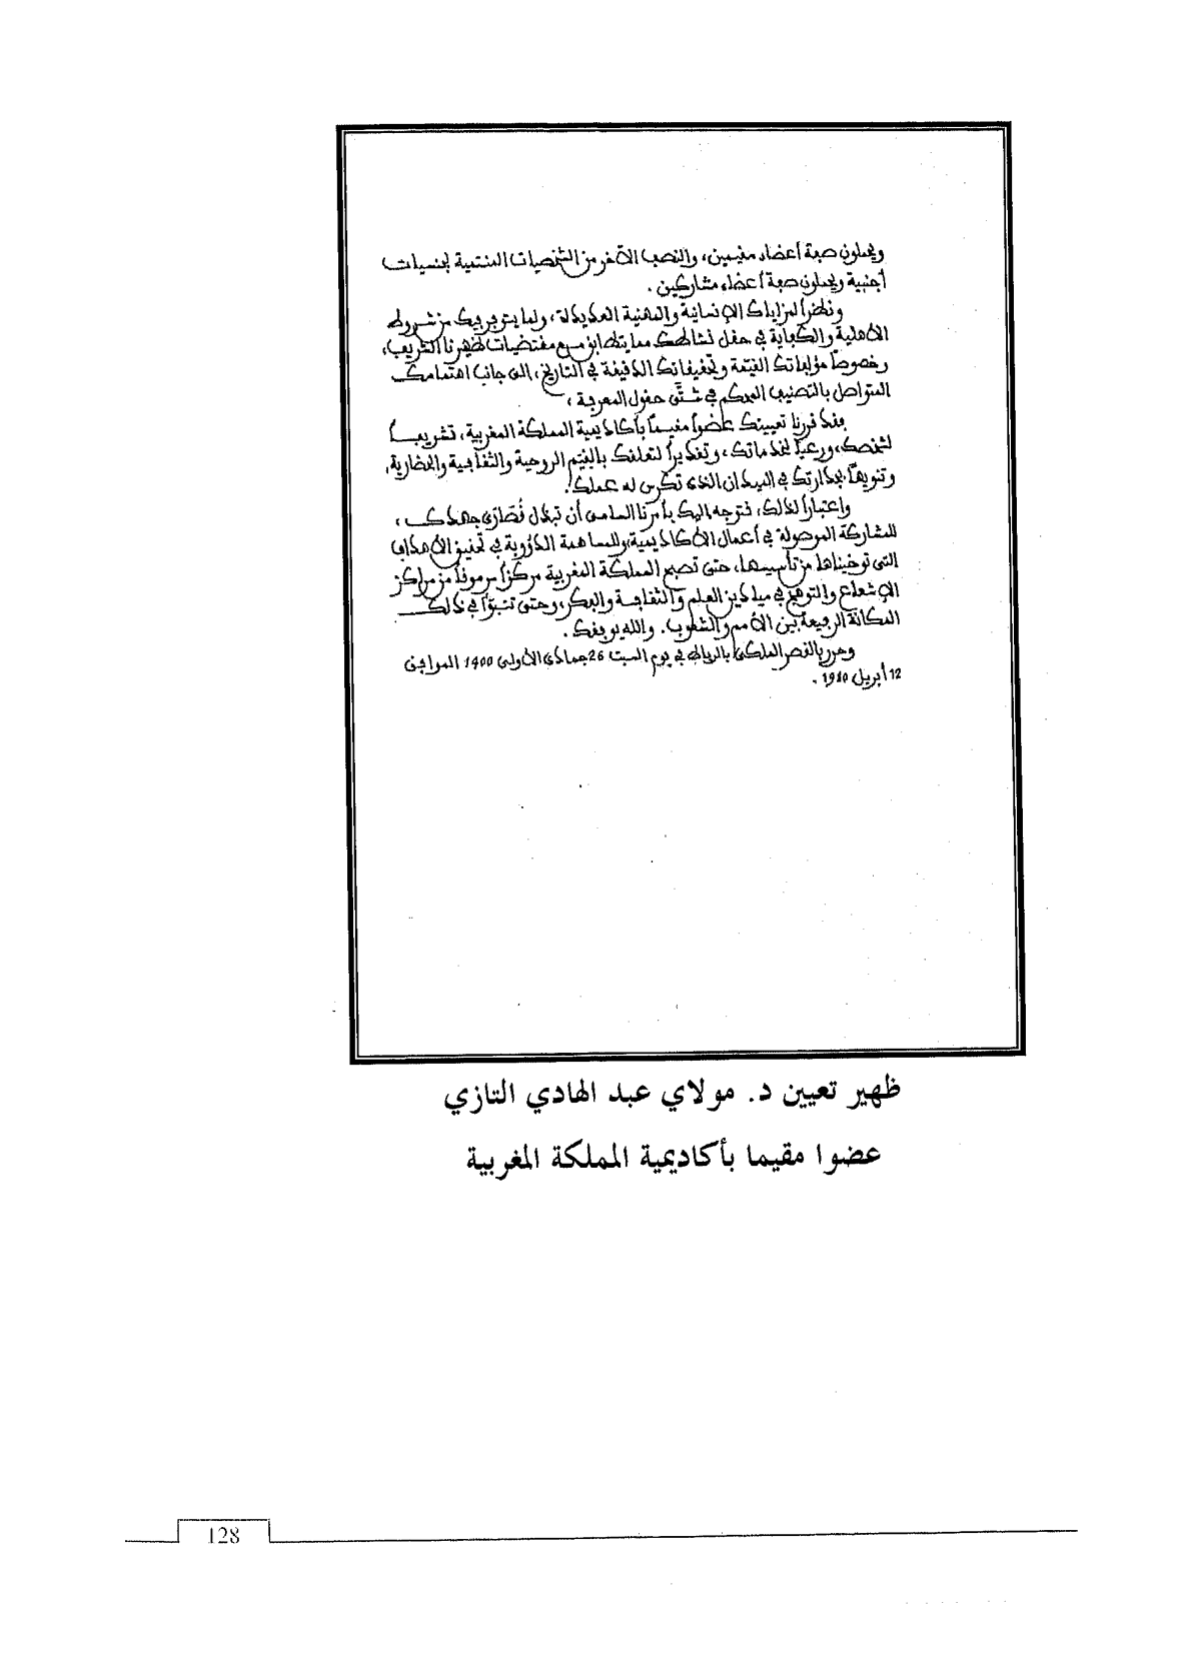 ويحملون صفة أعضاء مقيمين، والنصف الآخر من الشخصيات المنتمية لجنسيات
أجنبية ويحملون صفة أعضاء مشاركين.
ونظراً لمزاياك الإنسانية والمهنية العديدة، ولما يتوفر فيك من شروط
الأهلية والكفاية في حقل نشاطك مما يتطابق مع مقتضيات ظهيرنا الشريف،
وخصوصاً مؤلفاتك القيمة وتحقيقاتك الدقيقة في التاريخ، إلى جانب اهتمامك
المتواصل بالتصنيف المحكم في شتَّى حقول المعرفة،
فقد قررنا تعيينك عضواً مقيماً بأكاديمية المملكة المغربية، تشريفاً
لشخصك، ورعياً لخدماتك، وتقديراً لتعلقك بالقيم الروحية والثقافية والحضارية،
وتنويهاً بجدارتك في الميدان الذي تكرس له عملك.
واعتباراً لذلك، نتوجه إليك بأمرنا السامي أن تبذل قُصَارَى جهدك،
للمشاركة الموصولة في أعمال الأكاديمية، وللمساهمة الدؤوبة في تحقيق الأهداف
التي توخيناها من تأسيسها، حتى تصبح المملكة المغربية مركزاً مرموقاً من مراكز
الإشعاع والتوهج في ميادين العلم والثقافة والفكر، وحتى تتبوّأ في ذلك
المكانة الرفيعة بين الأمم والشعوب. والله يوفقك.
وحرر بالقصر الملكي بالرباط في يوم السبت 26 جمادى الأولى 1400 الموافق
12 أبريل 1980.
ظهير تعيين د. مولاي عبد الهادي التازي
عضوا مقيما بأكاديمية المملكة المغربية
128